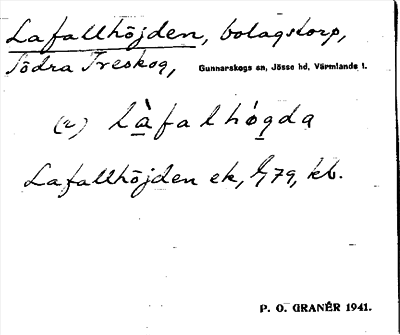 Lafallhöjden, bolagstorp,
Södra Treskog, Gunnarskogs sn, Jösse hd, Värmlands l.
(2) làfalhǿgda
Lafallhöjden ek, 1/79, kb.
P. O. GRANÉR 1941.